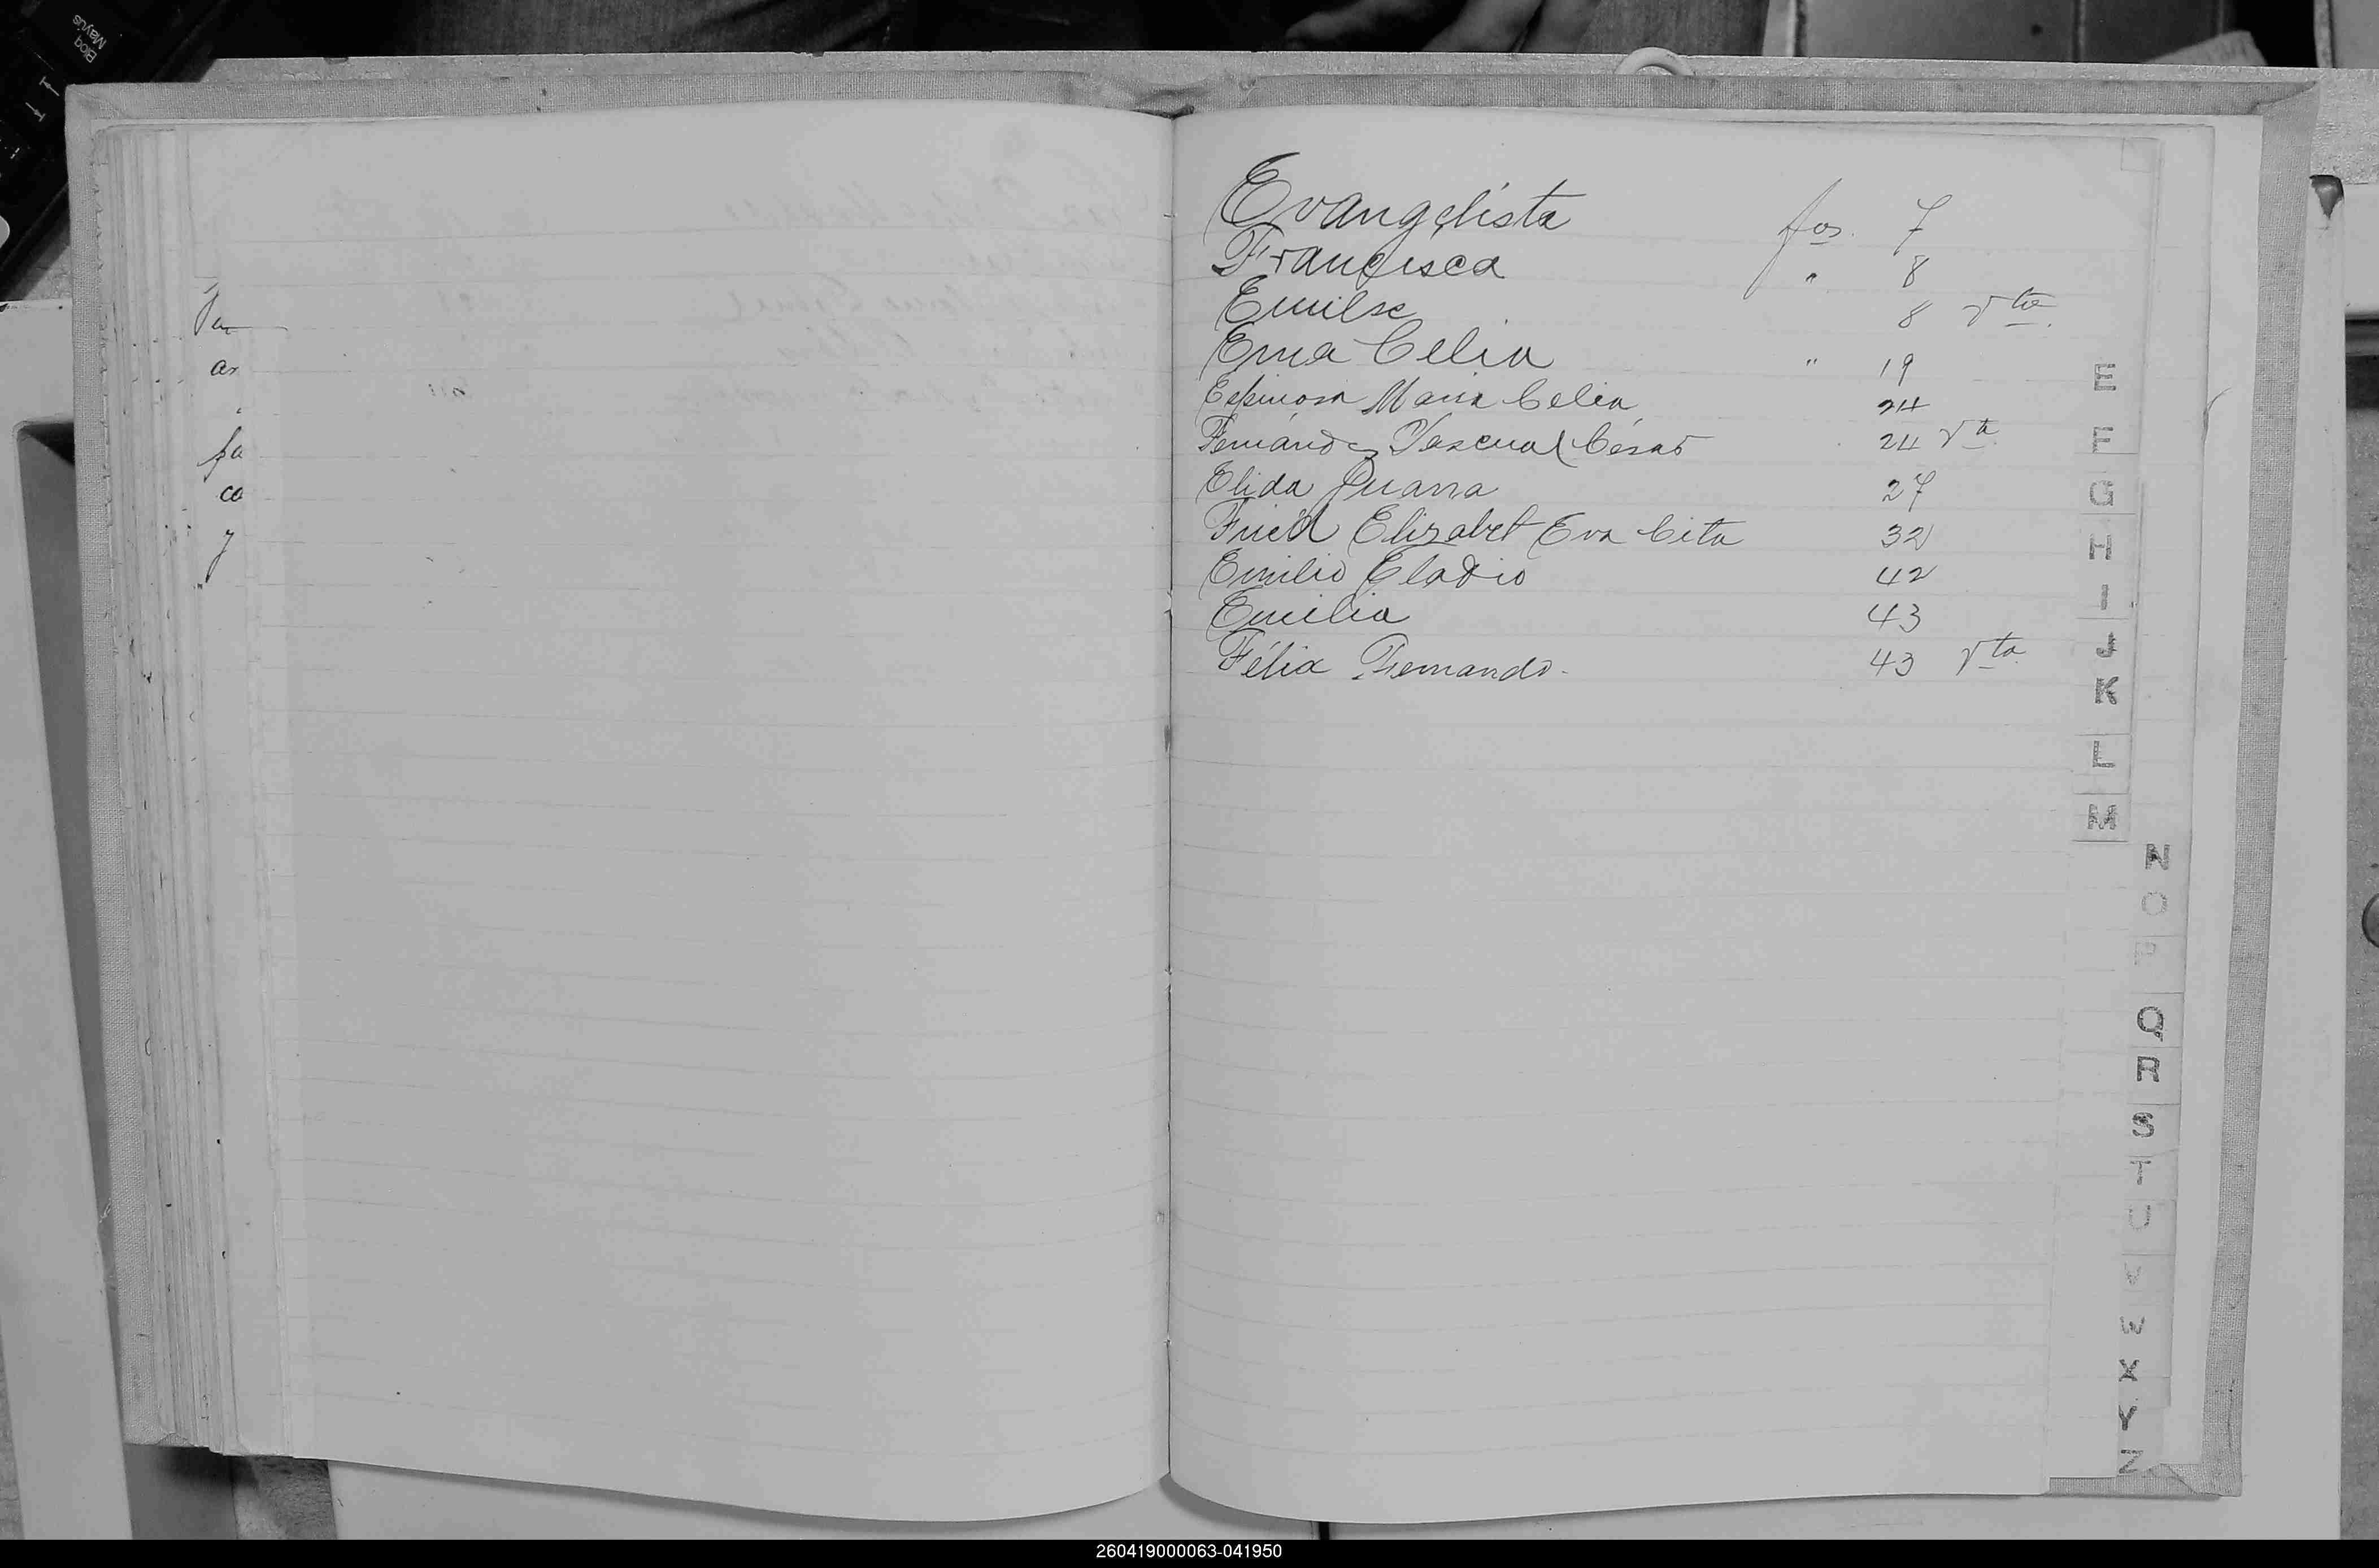 Bloq
Mayús
an
fa
co
y
Evangelista fos. 7
Francisca " 8
Emilse 8 vta.
Ema Celia " 19
Espinosa Maria Celia 24
Fernández Pascual César 24 vta
Elida Juana 27
Elizabet Eva Cita 32
Emilio Eladio 42
Emilia 43
Félix Fernando. 43 vta
E
F
G
H
I
J
K
L
M
N
O
P
Q
R
S
T
U
V
W
X
Y
Z
260419000063-041950